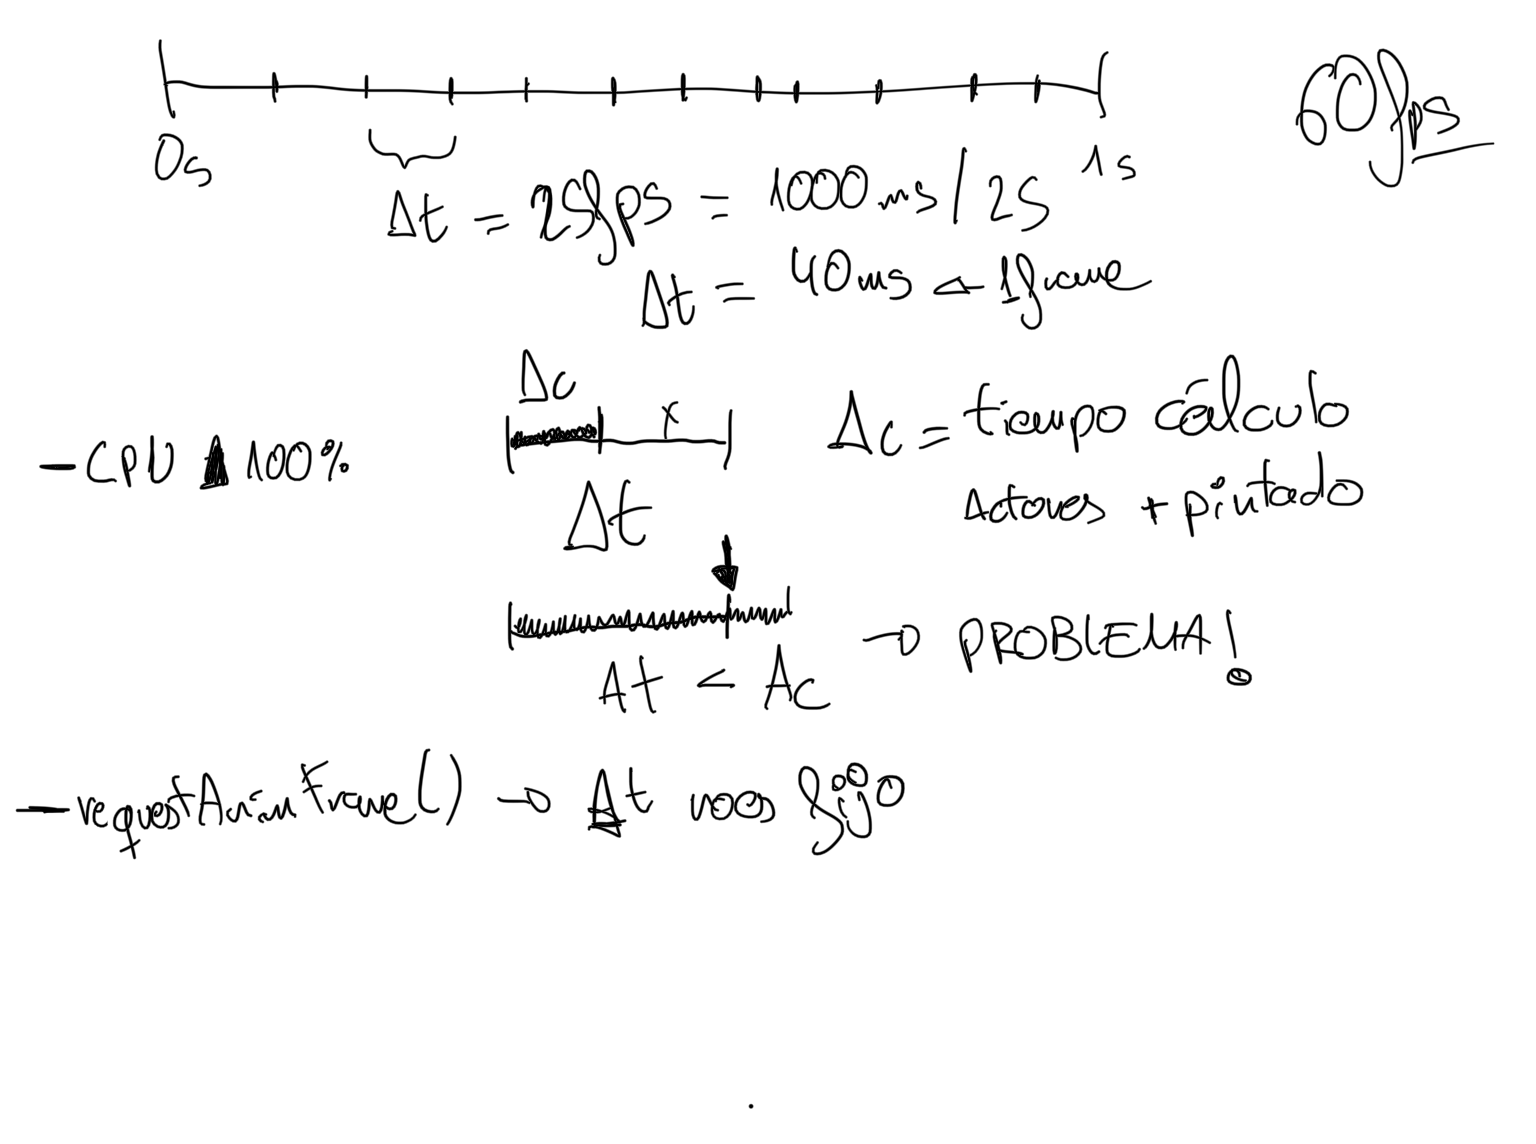 60fps
0s
1s
Δt = 25fps = 1000ms / 25
Δt = 40ms ← 1frame
Δc
x
Δc = tiempo cálculo
Actores + pintado
- CPU 100%
Δt
Δt < Δc → PROBLEMA!
- requestAnimFrame() → Δt no es fijo